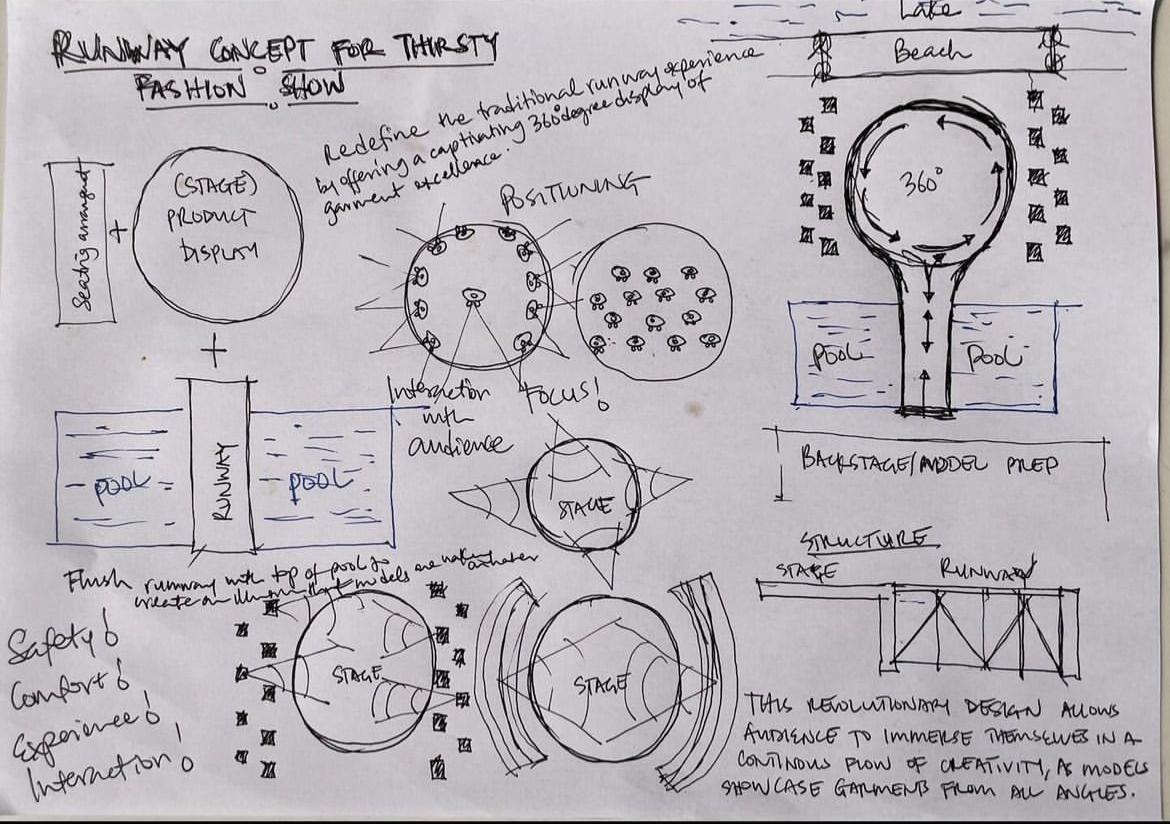 RUNWAY CONCEPT FOR THIRSTY
FASHION SHOW
Redefine the traditional runway experience
by offering a captivating 360°degree display of
garment excellence.
Seating arrangement
+
(STAGE)
PRODUCT
DISPLAY
+
POOL
RUNWAY
POOL
Flush runway with top of pool to
create an that models are on water
POSITIONING
Interaction
with
audience
FOCUS!
STAGE
STAGE
STAGE
Safety!
Comfort!
Experience!
Interaction!
Lake
Beach
360°
POOL
POOL
BACKSTAGE/MODEL PREP
STRUCTURE
STAGE
RUNWAY
THIS REVOLUTIONARY DESIGN ALLOWS
AUDIENCE TO IMMERSE THEMSELVES IN A
CONTINOUS FLOW OF CREATIVITY, AS MODELS
SHOWCASE GARMENTS FROM ALL ANGLES.